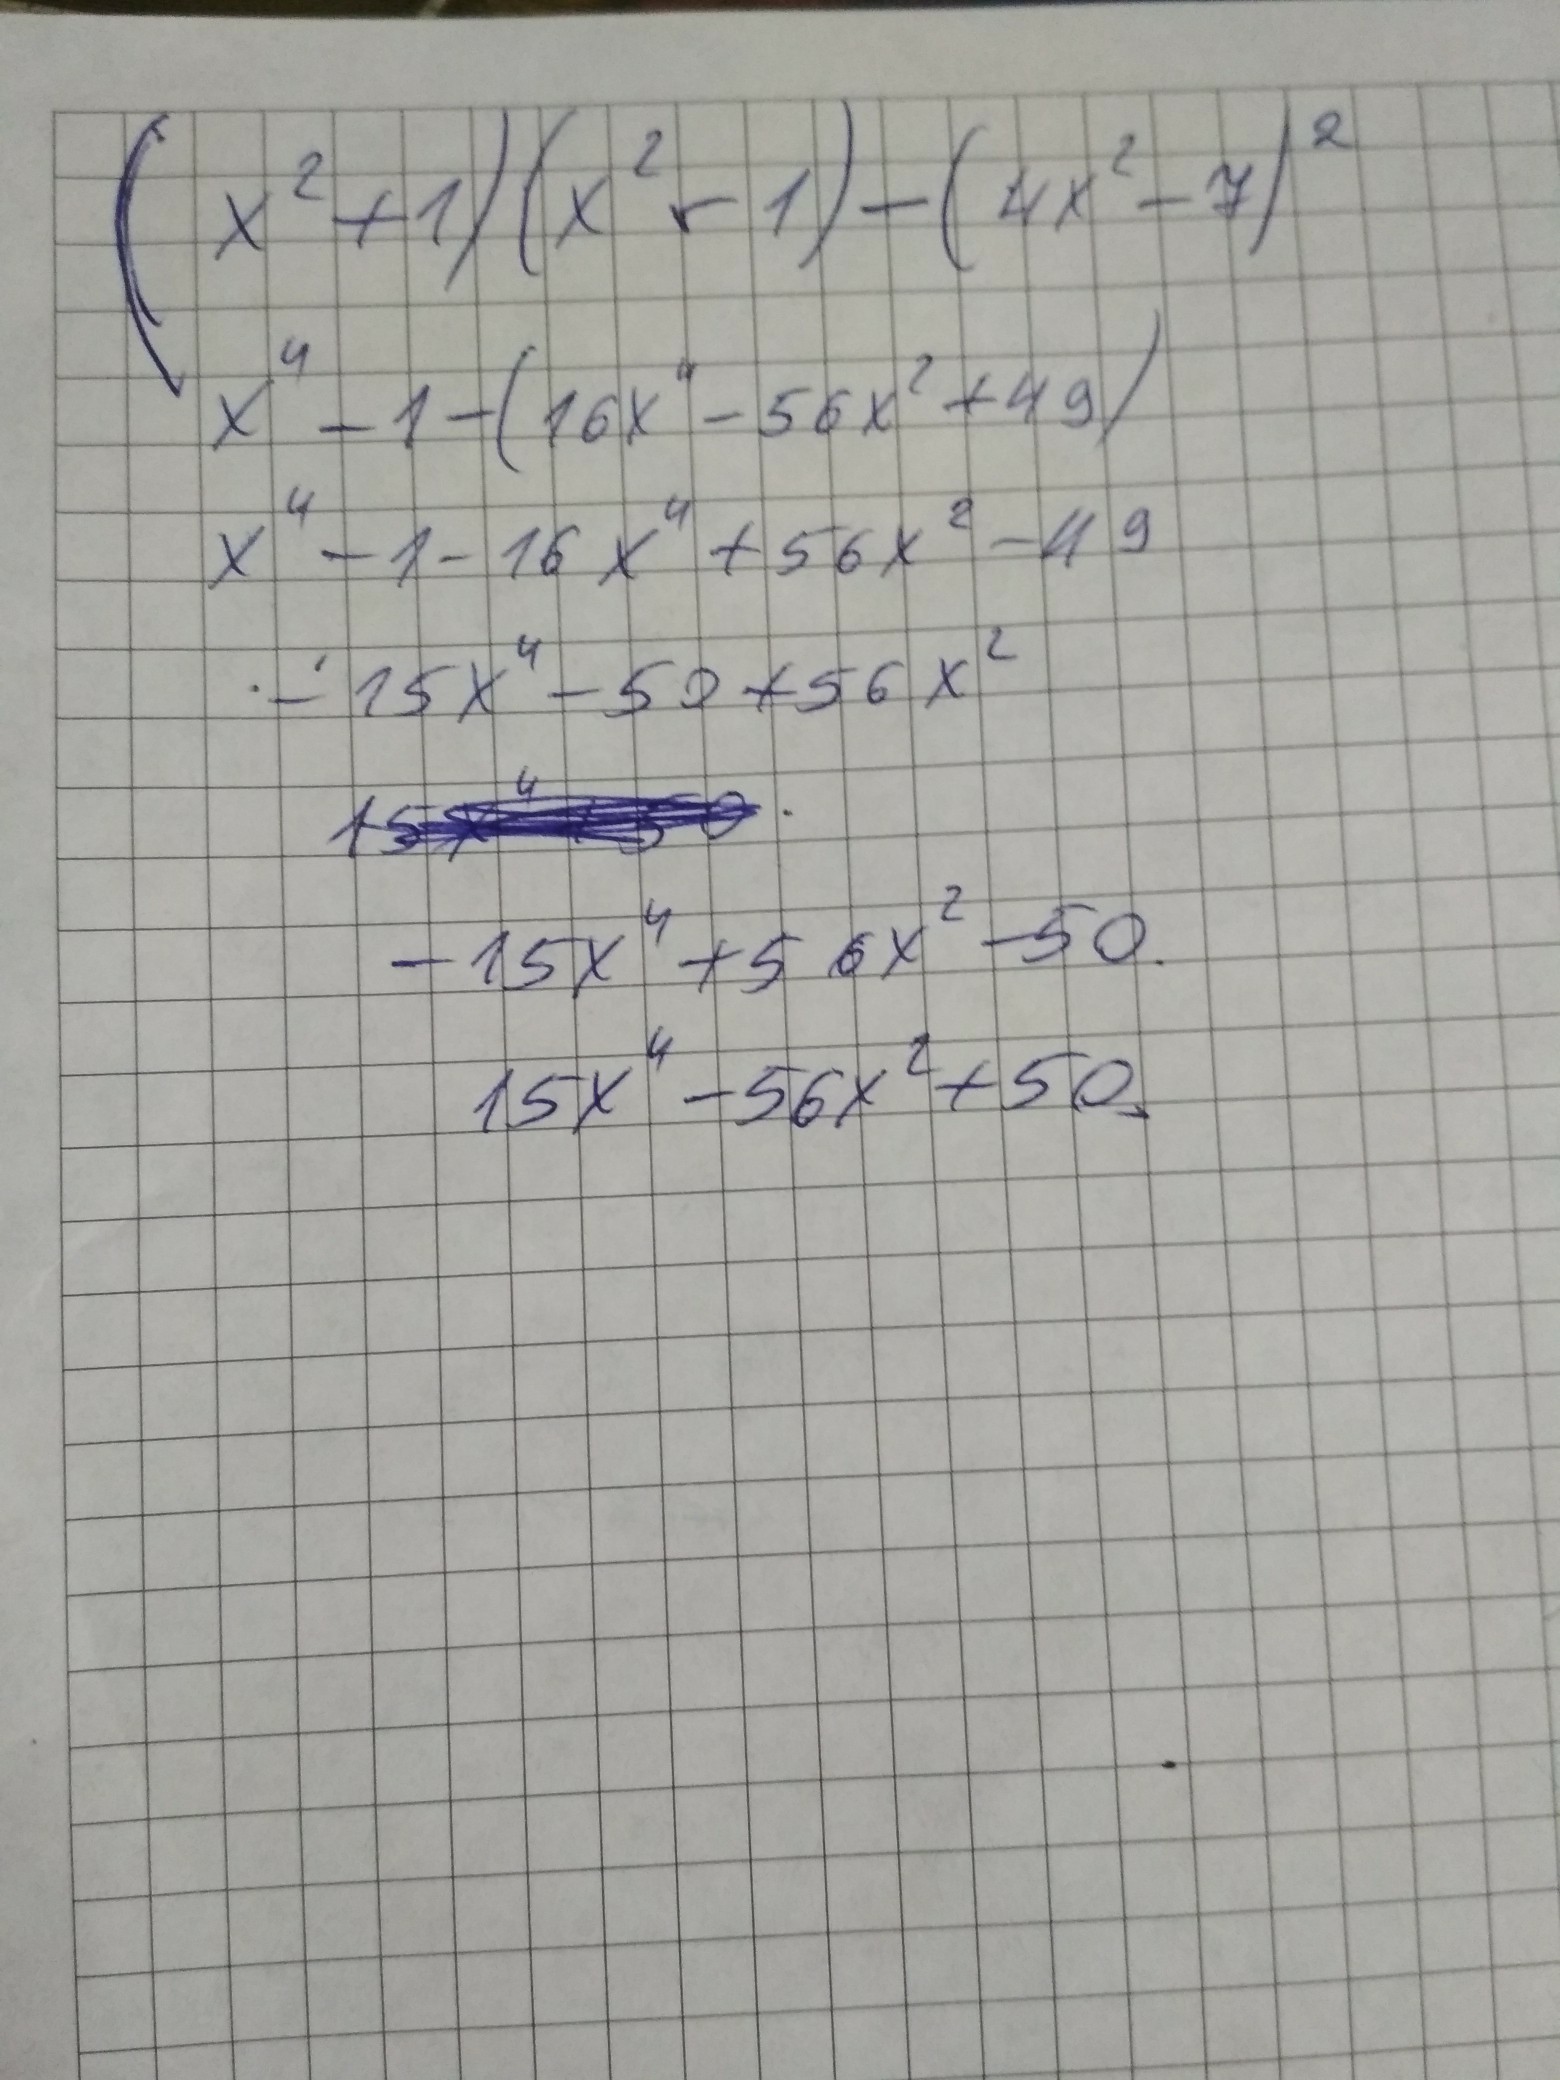 (x²+1)(x²-1)-(4x²-7)²
x⁴-1-(16x⁴-56x²+49)
x⁴-1-16x⁴+56x²-49
-15x⁴-50+56x²
-15x⁴+56x²-50.
15x⁴-56x²+50.